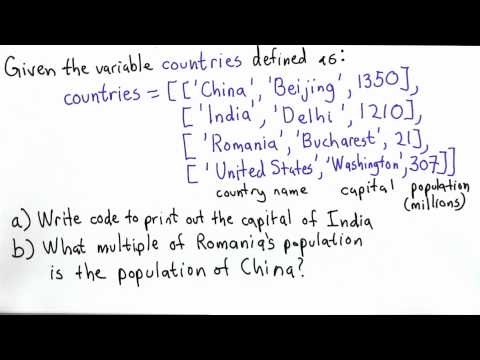 Given the variable countries defined as:
countries = [['China', 'Beijing', 1350],
['India', 'Delhi', 1210],
['Romania', 'Bucharest', 21],
['United States', 'Washington', 307]]
country name capital population
(millions)
a) Write code to print out the capital of India
b) What multiple of Romania's population
is the population of China?